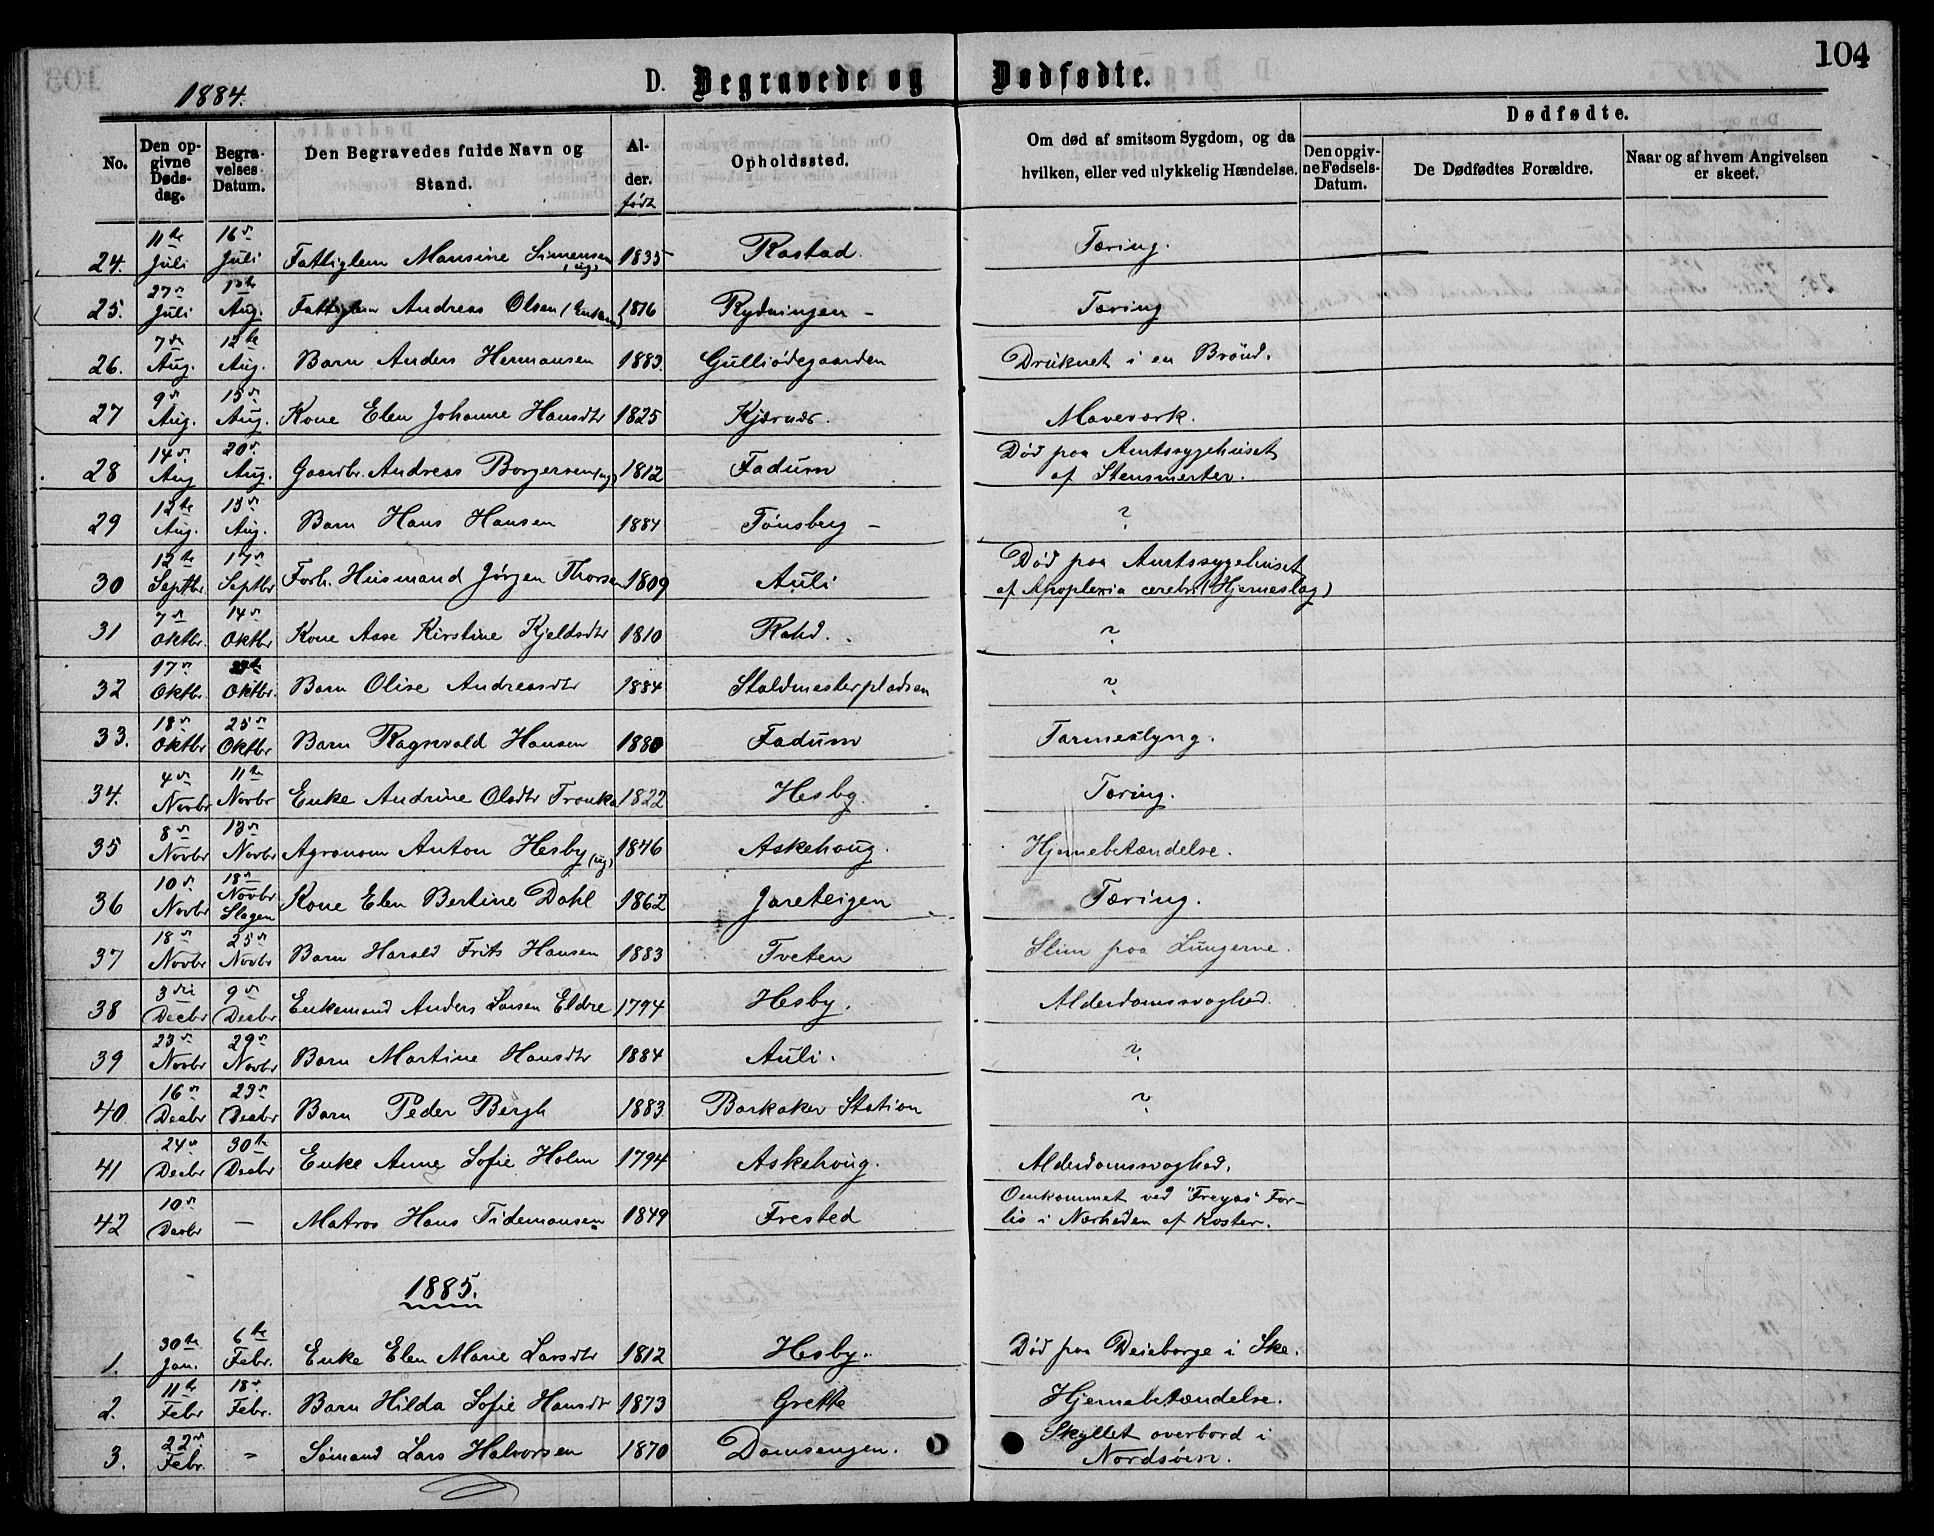 104
1884.
D. Begravede og Dødfødte.
No.
Den opgivne Dødsdag.
Begravelses Datum.
Den Begravedes fulde Navn og Stand.
Alder.
født
Opholdssted.
Om død af smitsom Sygdom, og da hvilken, eller ved ulykkelig Hændelse.
Dødfødte.
Den opgivne Fødsels-Datum.
De Dødfødtes Forældre.
Naar og af hvem Angivelsen er skeet.
24. 11te Juli 16de Juli Fattiglem Mansine Simensen (ug) 1835 Rastad. Tæring.
25. 27de Juli Aug. Fattiglem Andreas Olsen (Enkem) 1816 Rydningen – Tæring
26. 7de Aug. 12te Aug. Barn Anders Hermansen 1883 Gulliødegaarden Druknet i en Brönd.
27 9de Aug. 15de Aug. Kone Elen Johanne Hansdtr 1825 Kjærnæs. Maveværk.
28 14de Aug 20de Aug. Gaardbr. Andreas Borgersen (ug) 1812 Fadum Død paa Amtssygehuset af Stensmerter.
29 12te Aug. 15de Aug. Barn Hans Hansen 1884 Tønsberg – ?
30 12te Septbr. 17de Septbr Forh. Husmand Jörgen Thorsen 1809 Auli Død paa Amtssygehuset af Apoplexia cerebri (Hjerneslag)
31 7de Oktbr. 14de Oktbr Kone Aase Kirstine Kjeldsdtr 1810 ?
32 17de Oktbr. Oktbr. Barn Olise Andreasdtr 1884 Staldmesterpladsen ?
33. 18de Oktbr 25de Oktbr Barn Ragnvald Hansen 1880 Fadum Tarmeslyng.
34. 4de Novbr 11te Novbr Enke Andrine Olsdtr 1822 Hesby. Tæring.
35 8de Novbr 13de Novbr Agronom Anton Hesby (ug) 1846 Askehoug. Hjernebetændelse.
36 10de Novbr 18de Novbr Slagen Kone Elen Bertine Dahl 1862 Jareteigen Tæring.
37 18de Novbr 25de Novbr Barn Harald Frits Hansen 1883 Tveten Slim paa Lungerne.
38 3die Decbr 9de Decbr Enkemand Anders Larsen Eldre 1794 Hesby. Alderdomssvaghed.
39 23de Novbr 29de Novbr Barn Martine Hansdtr 1884 Auli. ?
40. 16de Decbr 23de Decbr Barn Peder Bergh 1883 Barkaker Station ?
41 24de Decbr 30te Decbr Enke Anne Sofie Holm 1794 Askehoug. Alderdomssvaghed.
42 10de Decbr – Matros Hans Tidemansen 1849 Frested Omkommet ved "Freyas" Forlis i Nærheden af Koster.
1885.
1. 30te Jan. 6te Febr. Enke Elen Marie Larsdtr 1812 Hesby. Død paa i Ske.
2. 11te Febr 18de Febr. Barn Hilda Sofie Hansdtr 1873 Grette Hjernebetændelse.
3. 22de Febr. " Sömand Lars Halvorsen 1870 Damsengen. Skyllet overbord i Nordsöen.